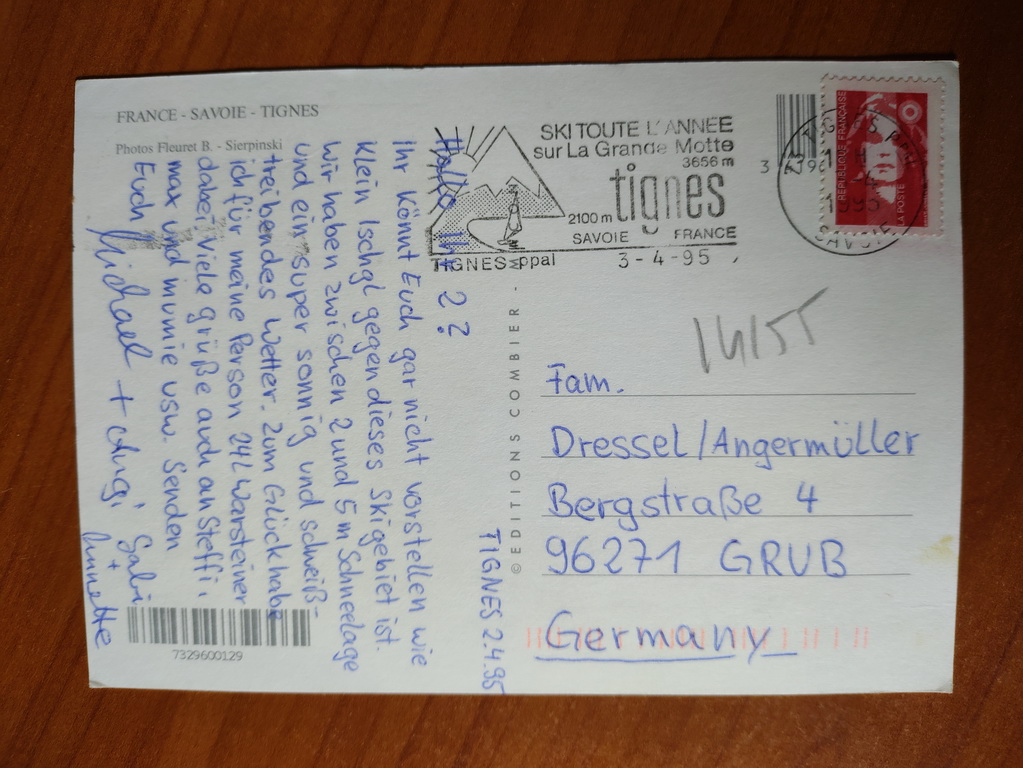 FRANCE - SAVOIE - TIGNES
Photos Fleuret B. - Sierpinski
TIGNES 2.4.95
Hallo Ihr 2?
Ihr könnt Euch gar nicht vorstellen wie
klein Ischgl gegen dieses Skigebiet ist.
Wir haben zwischen 2 und 5 m Schneelage
und ein super sonnig und schweiß-
treibendes Wetter. Zum Glück habe
ich für meine Person 24L Warsteiner
dabei. Viele grüße auch an Steffi,
max und mumie usw. Senden
Euch Michael + Angi, Gabi
+ Annette
7329600129
© EDITIONS COMBIER -
SKI TOUTE L'ANNEE
sur La Grande Motte
3656 m
tignes
2100 m
SAVOIE FRANCE
TIGNES ppal 3-4-95
REPUBLIQUE FRANÇAISE
LA POSTE
SAVOIE
14155
Fam.
Dressel/Angermüller
Bergstraße 4
96271 GRUB
Germany